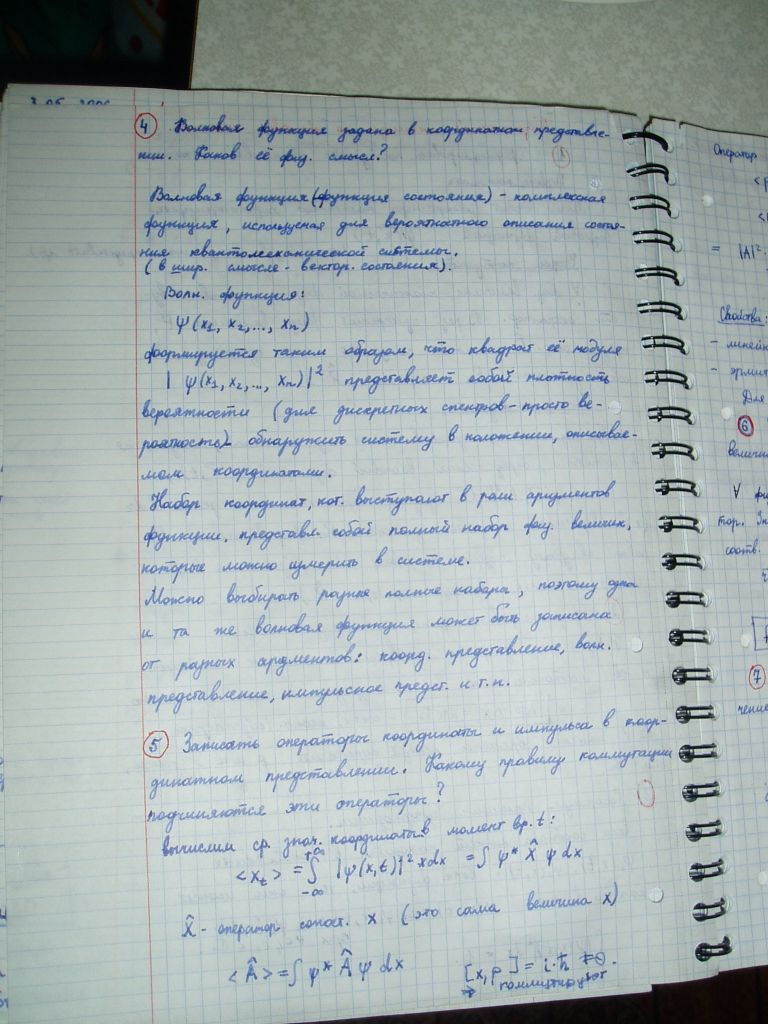 4 Волновая функция задана в координатном представле-
нии. Каков её физ. смысл?
Волновая функция (функция состояния) - комплексная
функция, используемая для вероятностного описания состоя-
ния квантовомеханической системы.
(в шир. смысле - вектор состояния).
Волн. функция:
ψ(x₁, x₂, ..., xₙ)
формируется таким образом, что квадрат её модуля
|ψ(x₁, x₂, ..., xₙ)|² представляет собой плотность
вероятности (для дискретных спектров - просто ве-
роятность) обнаружить систему в положении, описывае-
мом координатами.
Набор координат, кот. выступают в роли аргументов
функции, представл. собой полный набор физ. величин,
которые можно измерить в системе.
Можно выбирать разные полные наборы, поэтому одна
и та же волновая функция может быть записана
от разных аргументов: коорд. представление, волн.
представление, импульсное предст. и т.п.
5 Записать операторы координаты и импульса в коор-
динатном представлении. Какому правилу коммутации
подчиняются эти операторы?
вычислим ср. знач. координаты в момент вр. t:
<x_t> = ∫_{-∞}^{+∞} |ψ(x,t)|² x dx = ∫ ψ* X̂ ψ dx
X̂ - оператор сопост. x (это сама величина x)
<Â> = ∫ ψ* Â ψ dx
[x, p] = i·ħ ≠ 0.
коммутируют
Оператор
= |A|²
Свойства:
- линейн
- эрмит
Для
6
величин
∀
тор.
соотв.
7
чение